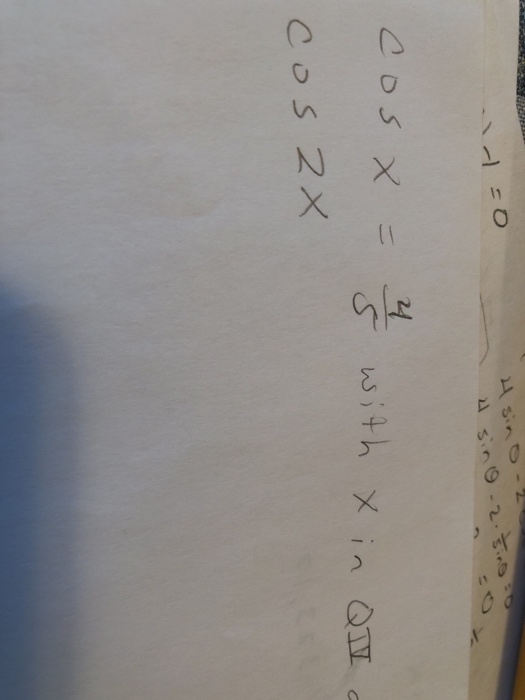 cos x = 4/5 with x in QIV
cos 2x
4 sin θ - 2
4 sin θ - 2 · 1/sin θ = 0
= 0